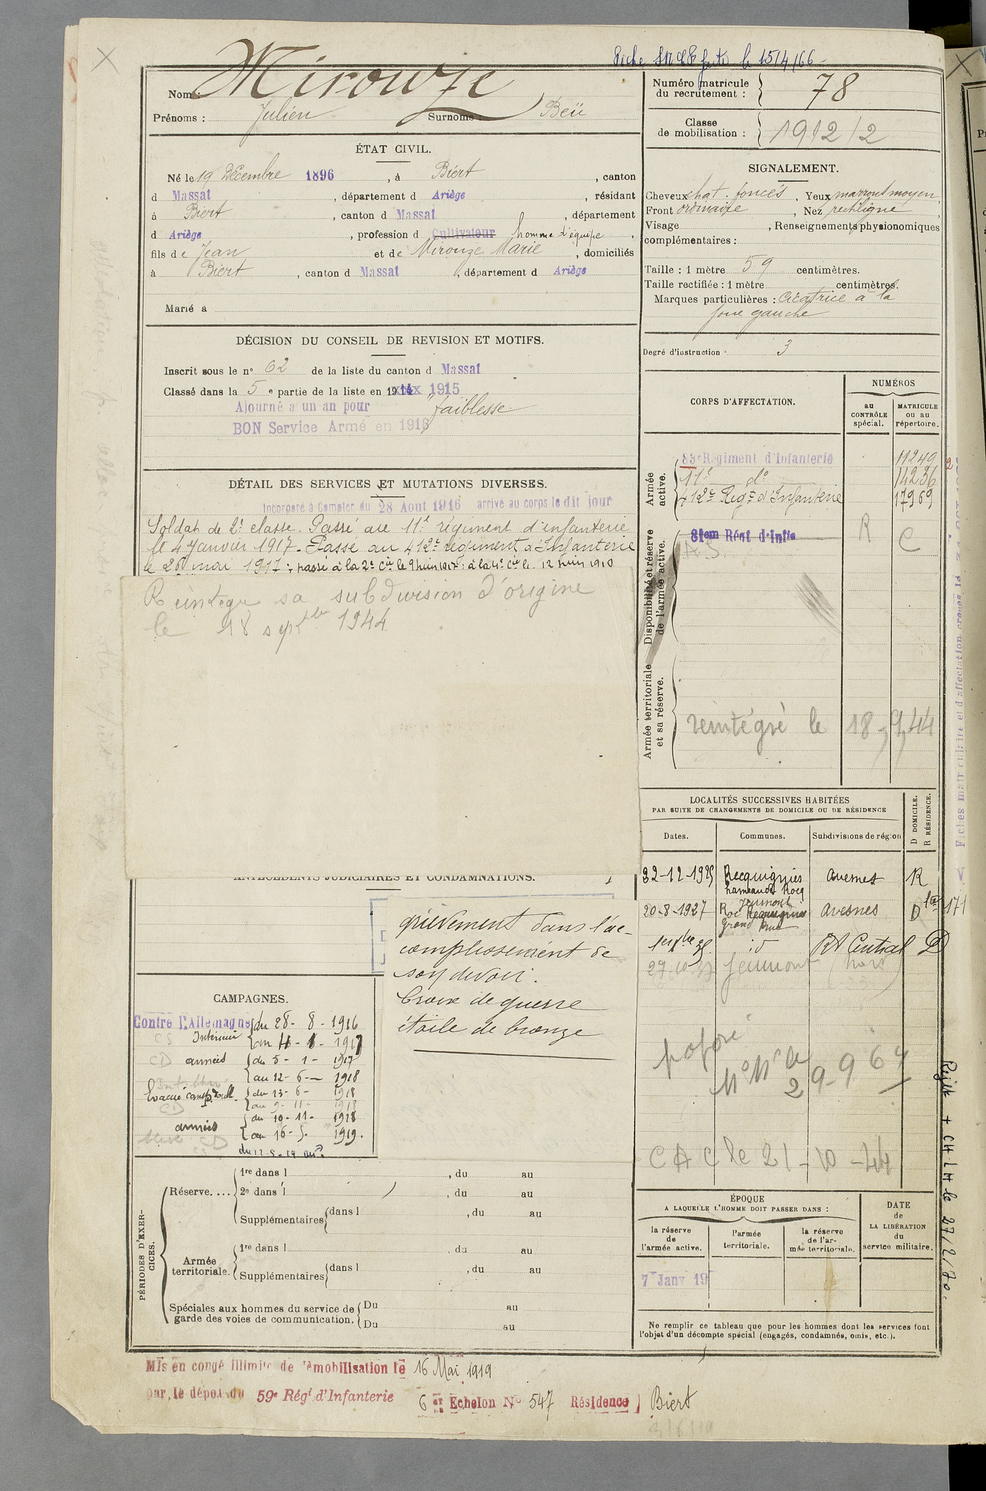 Fiche faite le 15/4/66
Nom : Mirouze
Prénoms : Julien Surnoms : Beü
Numéro matricule du recrutement : 78
Classe de mobilisation : 1912/2
ÉTAT CIVIL.
Né le 19 Décembre 1896, à Biert, canton
d Massat, département d Ariège, résidant
à Biert, canton d Massat, département
d Ariège, profession d Cultivateur homme d'équipe,
fils de Jean et de Mirouze Marie, domiciliés
à Biert, canton d Massat, département d Ariège
Marié à
SIGNALEMENT.
Cheveux chat. foncés, Yeux marrons moyen
Front ordinaire, Nez rectiligne
Visage , Renseignements physionomiques
complémentaires :
Taille : 1 mètre 59 centimètres.
Taille rectifiée : 1 mètre centimètres.
Marques particulières : Cicatrice à la
joue gauche
Degré d'instruction : 3
DÉCISION DU CONSEIL DE REVISION ET MOTIFS.
Inscrit sous le n° 62 de la liste du canton d Massat
Classé dans la 5e partie de la liste en 1915
Ajourné à un an pour faiblesse
BON Service Armé en 1916
DÉTAIL DES SERVICES ET MUTATIONS DIVERSES.
Incorporé à compter du 28 Août 1916 arrivé au corps le dit jour
Soldat de 2e classe. Passé au 11e régiment d'infanterie
le 4 janvier 1917. Passé au 412e régiment d'Infanterie
le 26 mai 1917; passé à la 2e Cie le 9 juin 1917: à la 4e Cie le 12 juin 1918
Réintégré sa subdivision d'origine
le 18 septbre 1944
CORPS D'AFFECTATION.
NUMÉROS
au CONTRÔLE spécial.
MATRICULE ou au répertoire.
Armée active.
83e Régiment d'Infanterie 11249
11e do 14236
412e Régt d'Infanterie 17969
Disponibilité et réserve de l'armée active.
81em Régt d'Infie R C
A.S.
Armée territoriale et sa réserve.
réintégré le 18-9-44
LOCALITÉS SUCCESSIVES HABITÉES
PAR SUITE DE CHANGEMENTS DE DOMICILE OU DE RÉSIDENCE
Dates. Communes. Subdivisions de région
D DOMICILE.
R RÉSIDENCE.
22-12-1925 Recquignies hameau de Rocq Avesnes R
20-8-1927 Jeumont Avesnes D
id Rt Central D
Jeumont
29-9 64
CAC le 21-10-44
ANTÉCÉDENTS JUDICIAIRES ET CONDAMNATIONS.
grièvement dans l'ac-
complissement de
son devoir.
Croix de guerre
étoile de bronze
CAMPAGNES.
Contre l'Allemagne du 28-8-1916
Intérieur au 4-1-1917
armées du 5-1-1917
au 12-6-1918
Évacué du 13-6-1918
au 9-11-1918
armées du 10-11-1918
au 16-5-1919.
PÉRIODES D'EXERCICES.
Réserve....
1re dans l , du au
2e dans l , du au
Supplémentaires dans l , du au
Armée territoriale.
1re dans l , du au
Supplémentaires dans l , du au
Spéciales aux hommes du service de garde des voies de communication.
Du au
Du au
ÉPOQUE
A LAQUELLE L'HOMME DOIT PASSER DANS :
la réserve de l'armée active.
l'armée territoriale.
la réserve de l'armée territoriale.
DATE de LA LIBÉRATION du service militaire.
7 Janv 19
Ne remplir ce tableau que pour les hommes dont les services font
l'objet d'un décompte spécial (engagés, condamnés, omis, etc.).
Mis en congé illimité de démobilisation le 16 Mai 1919
par le dépôt du 59e Régt d'Infanterie 6e Echelon N° 547 Résidence Biert
le 27/2/70.